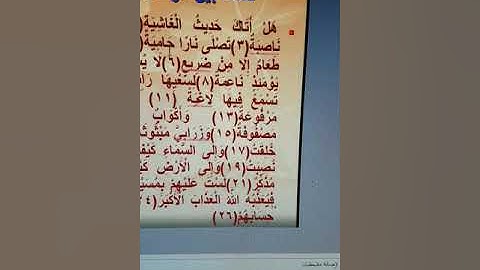 هَلْ أَتَاكَ حَدِيثُ الْغَاشِيَةِ(
نَاصِبَةٌ(٣)تَصْلَى نَارًا حَامِيَةً(
طَعَامٌ إِلَّا مِنْ ضَرِيعٍ(٦)لَا
يَوْمَئِذٍ نَاعِمَةٌ(٨)لِسَعْيِهَا
تَسْمَعُ فِيهَا لَاغِيَةً (١١)
مَرْفُوعَةٌ(١٣) وَأَكْوَابٌ
مَصْفُوفَةٌ(١٥)وَزَرَابِيُّ مَبْثُوثَ
خُلِقَتْ(١٧)وَإِلَى السَّمَاءِ كَيْفَ
نُصِبَتْ(١٩)وَإِلَى الْأَرْضِ
مُذَكِّرٌ(٢١)لَسْتَ عَلَيْهِمْ
فَيُعَذِّبُهُ اللهُ الْعَذَابَ الْأَكْبَرَ(٢٤
حِسَابَهُمْ(٢٦)